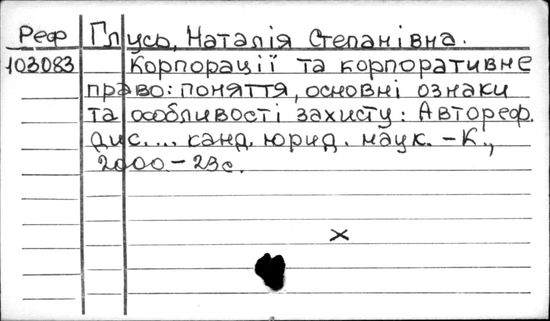 Реф Глусь, Наталія Степанівна.
103083 Корпорації та корпоративне
право: поняття, основні ознаки
та особливості захисту: Автореф.
дис.... канд. юрид. наук. – К.,
2000. – 23с.